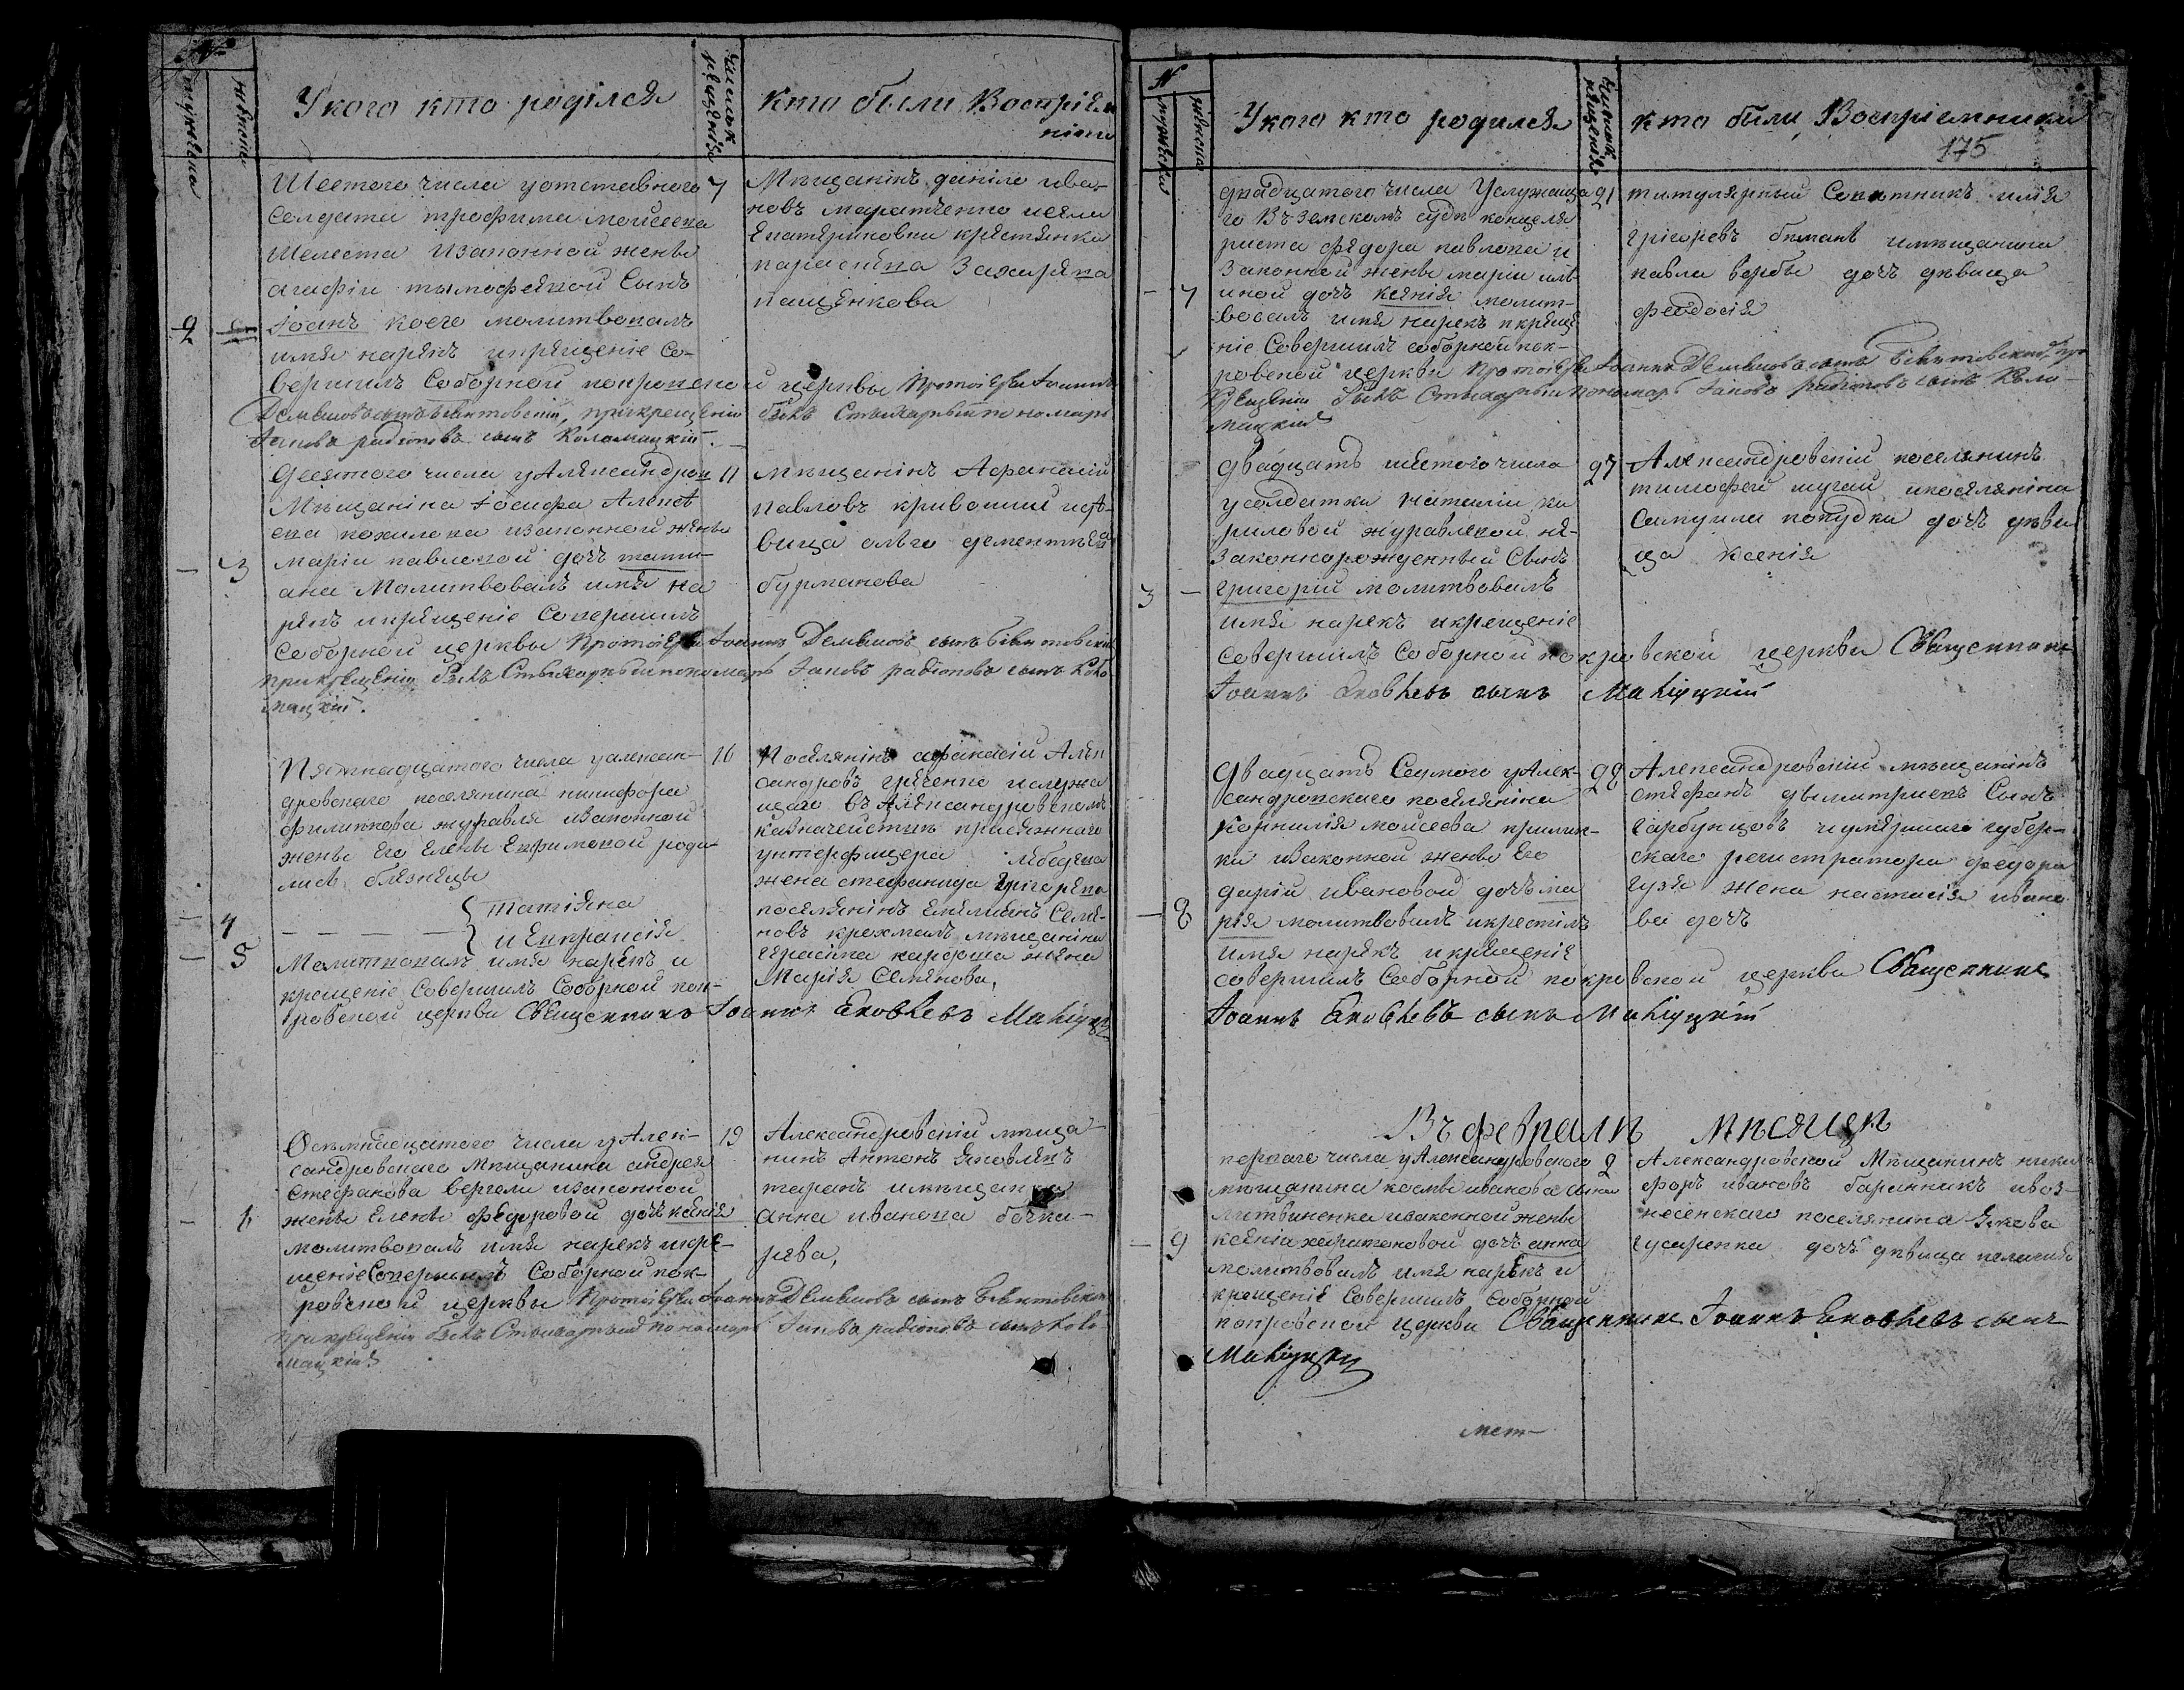 №
мужеска
женска
У кого кто родился
число крещенія
Кто были Воспріем
ники
Шестого числа уотставного
7
Солдата трофима мойсеева
Шелеста изаконной жены
агафіи тимофеевой Сынъ
2
Іоанъ коего молитвовалъ
имя нарекъ икрещеніе со-
вершилъ Соборной покровской церквы Протоіерей Іоаннъ
Демьяновъ сынъ прикрещеніи былъ Стихарный пономарь
Іаковъ радіоновъ сынъ Коломацкій.
Мещанинъ данило ива-
новъ маратченко
Екатериновки крестьянка
параскева Захарева
пащенкова
Десятого числа уАлександров
11
Мещанина Іосифа Алексѣ
ева изаконной жены
маріи павловой дочь тати-
3
ана Молитвовалъ имя на
рекъ икрещеніе Совершилъ
Соборной церквы Протоіерей Іоаннъ Демьяновъ сынъ
прикрещеніи былъ Стихарный пономарь Іаковъ радіоновъ сынъ Коло
мацкій.
Мещанинъ Афанасій
павловъ кривошии идѣ-
вица олга дементѣева
бурмакова
Пятнадцатого числа уалексан-
16
дровского поселянина никифора
филипова журавля изаконной
жены Его Елены Ефимовой роди-
лись близнецы
4
татіяна
5
и Евпраксія
Молитвовалъ имя нарекъ и
крещеніе Совершилъ Соборной пок-
ровской церкви Священникъ Іоаннъ Яковлевъ
Поселянинъ афанасій Алек
сандровъ гриченко ислужа
щаго въ Александровскомъ
казначействѣ присяжного
унтерофицера лебедева
жена стефанида григорева
поселянинъ Емелиянъ Семе-
новъ крахмаль мещанина
герасима жена
Марія Семенова,
Осемнадцатого числа уАлек-
19
сандровского Мещанина андрея
Стефанова вергели изаконной
6
жены Елены Федоровой дочь ксенія
молитвовалъ имя нарекъ икре-
щеніе Совершилъ Соборной пок-
ровской церквы Протоіерей Іоаннъ Демьяновъ сынъ
прикрещеніи былъ Стихарный пономарь Іаковъ радіоновъ сынъ Коло
мацкій
Александровскій меща-
нинъ Антонъ Яковлевъ
таранъ имещанка
анна иванова бочка-
рева,
№
мужеска
женска
У кого кто родился
число крещенія
кто были Воспріемники
175
двадцатого числа Услужаща
21
го Въ земскомъ судѣ канцеля
риста федора павлова и
Законной жены маріи иль
7
иной дочь ксенія молит-
вовалъ имя нарекъ икреще
ніе Совершилъ соборной пок-
ровской церкви Протоіерей Іоаннъ Демьяновъ сынъ при
крещеніи былъ Стихарный пономарь Іаковъ радіоновъ сынъ Коло-
мацкій
титулярный Советникъ илія
грігоревъ имещанина
павла вербы дочь девица
феодосія
двадцать шестого числа
27
усолдатки наталіи ки
риловой журавлевой не-
законнорожденный Сынъ
3
григорій молитвовалъ
имя нарекъ икрещеніе
совершилъ Соборной покровской церкви Священникъ
Іоаннъ Яковлевъ сынъ
Александровскій поселянинъ
тимофей шугай ипоселянина
Самуила дочь деви
ца ксенія
двадцать Седмого уАлек-
28
сандровского поселянина
корнилія мойсеева
изаконной жены Его
даріи ивановой дочь ма
8
рія молитвовалъ икрестилъ
имя нарекъ икрещеніе
совершилъ Соборной покровской церкви Священникъ
Іоаннъ Яковлевъ сынъ
Александровскій мещанинъ
стефанъ дмитриевъ Сынъ
гарбузцовъ иумершаго губер-
скаго регистратора федора
гузя жена настасія ивано
ва дочь
Въ февралѣ мѣсяцѣ
перваго числа уАлександровского
2
мещанина космы иванова сына
литвиненка изаконной жены
9
ксеніи харитоновой дочь анна
молитвовалъ имя нарекъ и
крещеніе Совершилъ Соборной
покровской церкви Священникъ Іоаннъ Яковлевъ сынъ
Александровской Мещанинъ ники
форъ ивановъ ивоз-
несенскаго поселянина Якова
гусаренка дочь девица пелагия
мет-